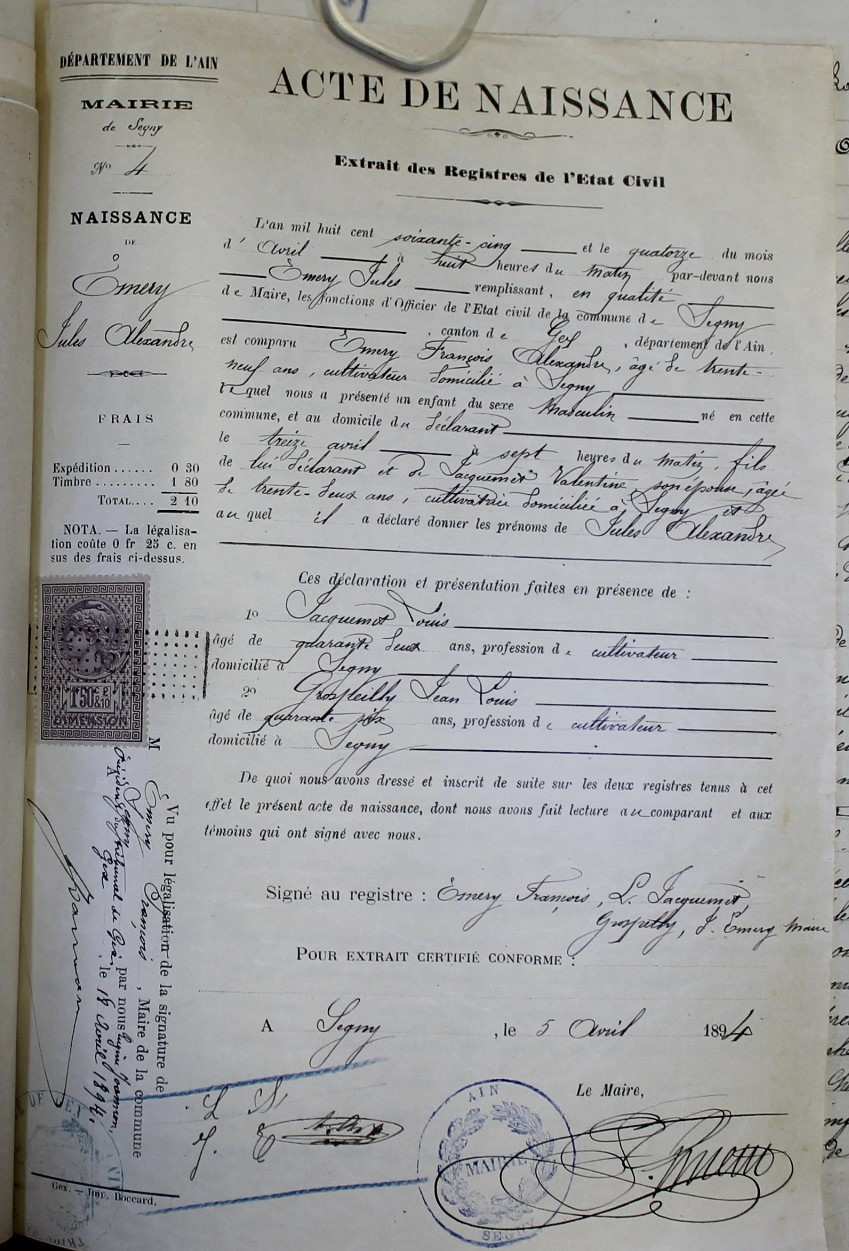 DÉPARTEMENT DE L'AIN
MAIRIE
de Segny
No 4
NAISSANCE
DE
Émery
Jules Alexandre
FRAIS
Expédition...... 0 30
Timbre......... 1 80
TOTAL.... 2 10
NOTA. — La légalisa-
tion coûte 0 fr 25 c. en
sus des frais ci-dessus.
DIMENSION
ACTE DE NAISSANCE
Extrait des Registres de l'Etat Civil
L'an mil huit cent soixante-cinq et le quatorze du mois
d' Avril à huit heures du matin par-devant nous
Émery Jules remplissant, en qualité
de Maire, les fonctions d'Officier de l'Etat civil de la commune de Segny
, canton de Gex, département de l'Ain,
est comparu Émery François Alexandre, âgé de trente-
neuf ans, cultivateur domicilié à Segny
lequel nous a présenté un enfant du sexe Masculin né en cette
commune, et au domicile du déclarant
le treize avril à sept heures du matin, fils
de lui déclarant et de Jacquemot Valentine son épouse, âgée
de trente-deux ans, cultivatrice domiciliée à Segny et
auquel il a déclaré donner les prénoms de Jules Alexandre
Ces déclaration et présentation faites en présence de :
1o Jacquemot Louis
âgé de quarante deux ans, profession de cultivateur
domicilié à Segny
2o Jean Louis
âgé de quarante ans, profession de cultivateur
domicilié à Segny
De quoi nous avons dressé et inscrit de suite sur les deux registres tenus à cet
effet le présent acte de naissance, dont nous avons fait lecture au comparant et aux
témoins qui ont signé avec nous.
Signé au registre : Émery François, L. Jacquemot,
J. Émery Maire
POUR EXTRAIT CERTIFIÉ CONFORME :
A Segny, le 5 Avril 1894
Le Maire,
AIN
MAIRIE
SEGNY
Vu pour légalisation de la signature de
M Émery François, Maire de la commune
de Segny par nous
Président du tribunal de Gex
A Gex, le 18 Avril 1894.
Gex. — Imp. Boccard.